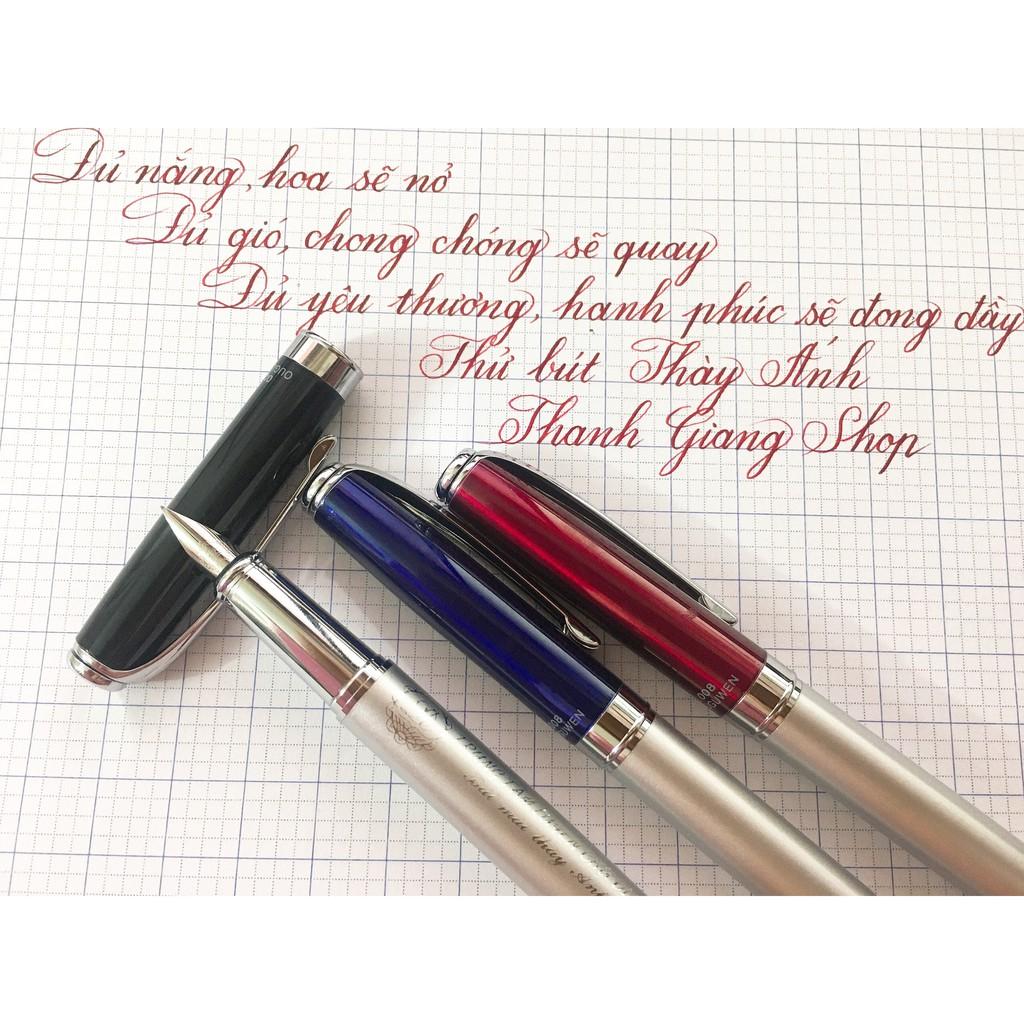 Đủ nắng, hoa sẽ nở
Đủ gió, chong chóng sẽ quay
Đủ yêu thương, hanh phúc sẽ đong đầy
Thử bút Thày Ánh
Thanh Giang Shop
008
GUWEN
008
GUWEN
mài thày Ánh